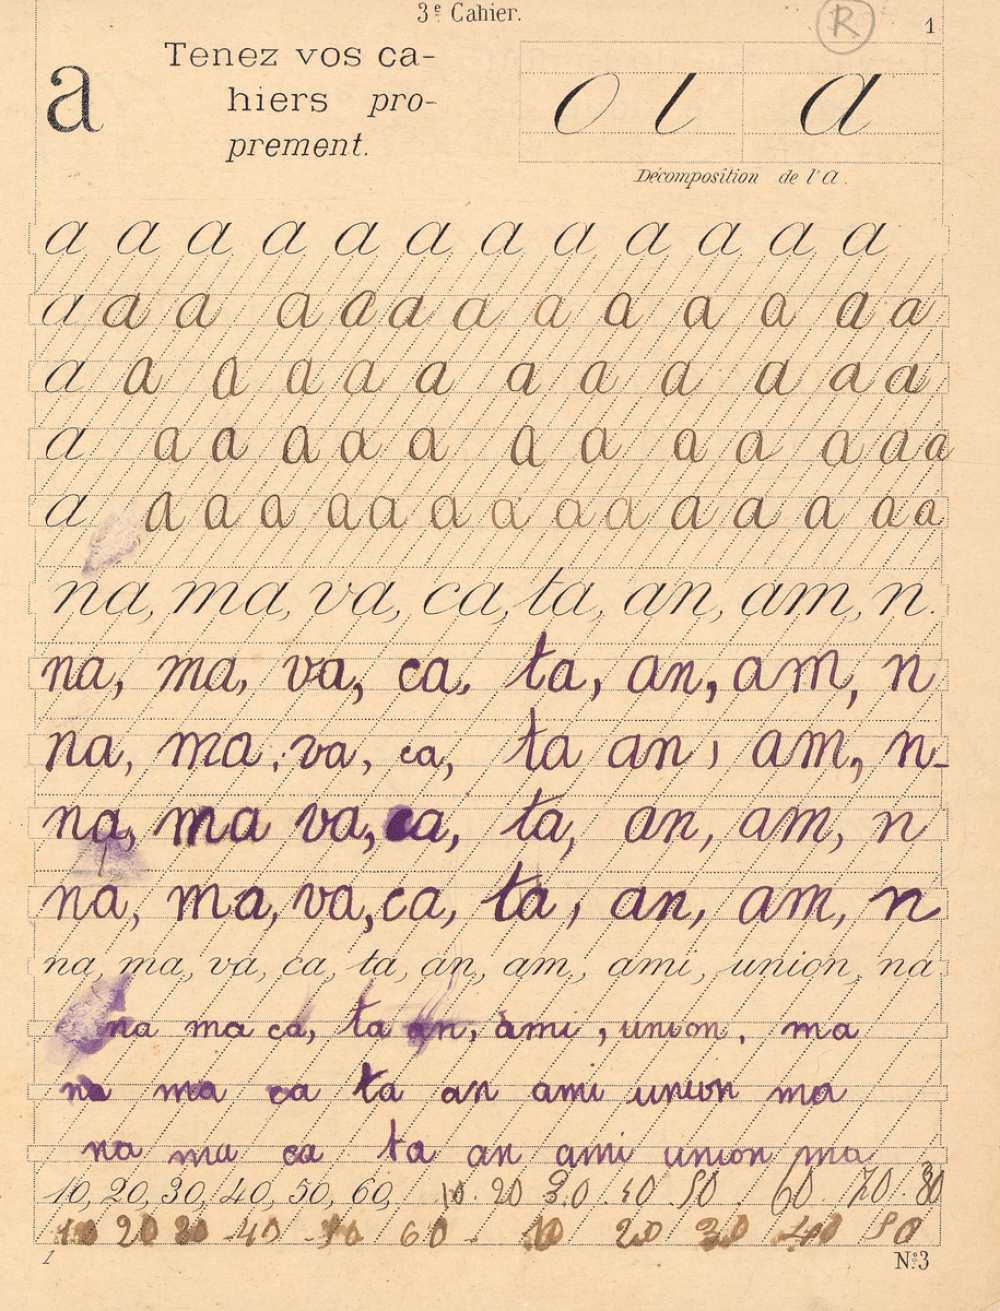 3e Cahier.
R
1
a
Tenez vos ca-
hiers pro-
prement.
o ι a
Décomposition de l'a.
a a a a a a a a a a a a
a a a a a a a a a a a a a
a a a a a a a a a a a a
a a a a a a a a a a a a a
a a a a a a a a a a a a a a
na, ma, va, ca, ta, an, am, n.
na, ma, va, ca, ta, an, am, n
na, ma, va, ca, ta an, am, n-
na, ma va, ca, ta, an, am, n
na, ma, va, ca, ta, an, am, n
na, ma, va, ca, ta, an, am, ami, union, na
na ma ca, ta an, ami, union, ma
na ma ca ta an ami union ma
na ma ca ta an ami union ma
10, 20, 30, 40, 50, 60, 10. 20 30 40 50. 60 70. 80
10 20 30 40 50 60 - 10 20 30 40 50
1
No.3